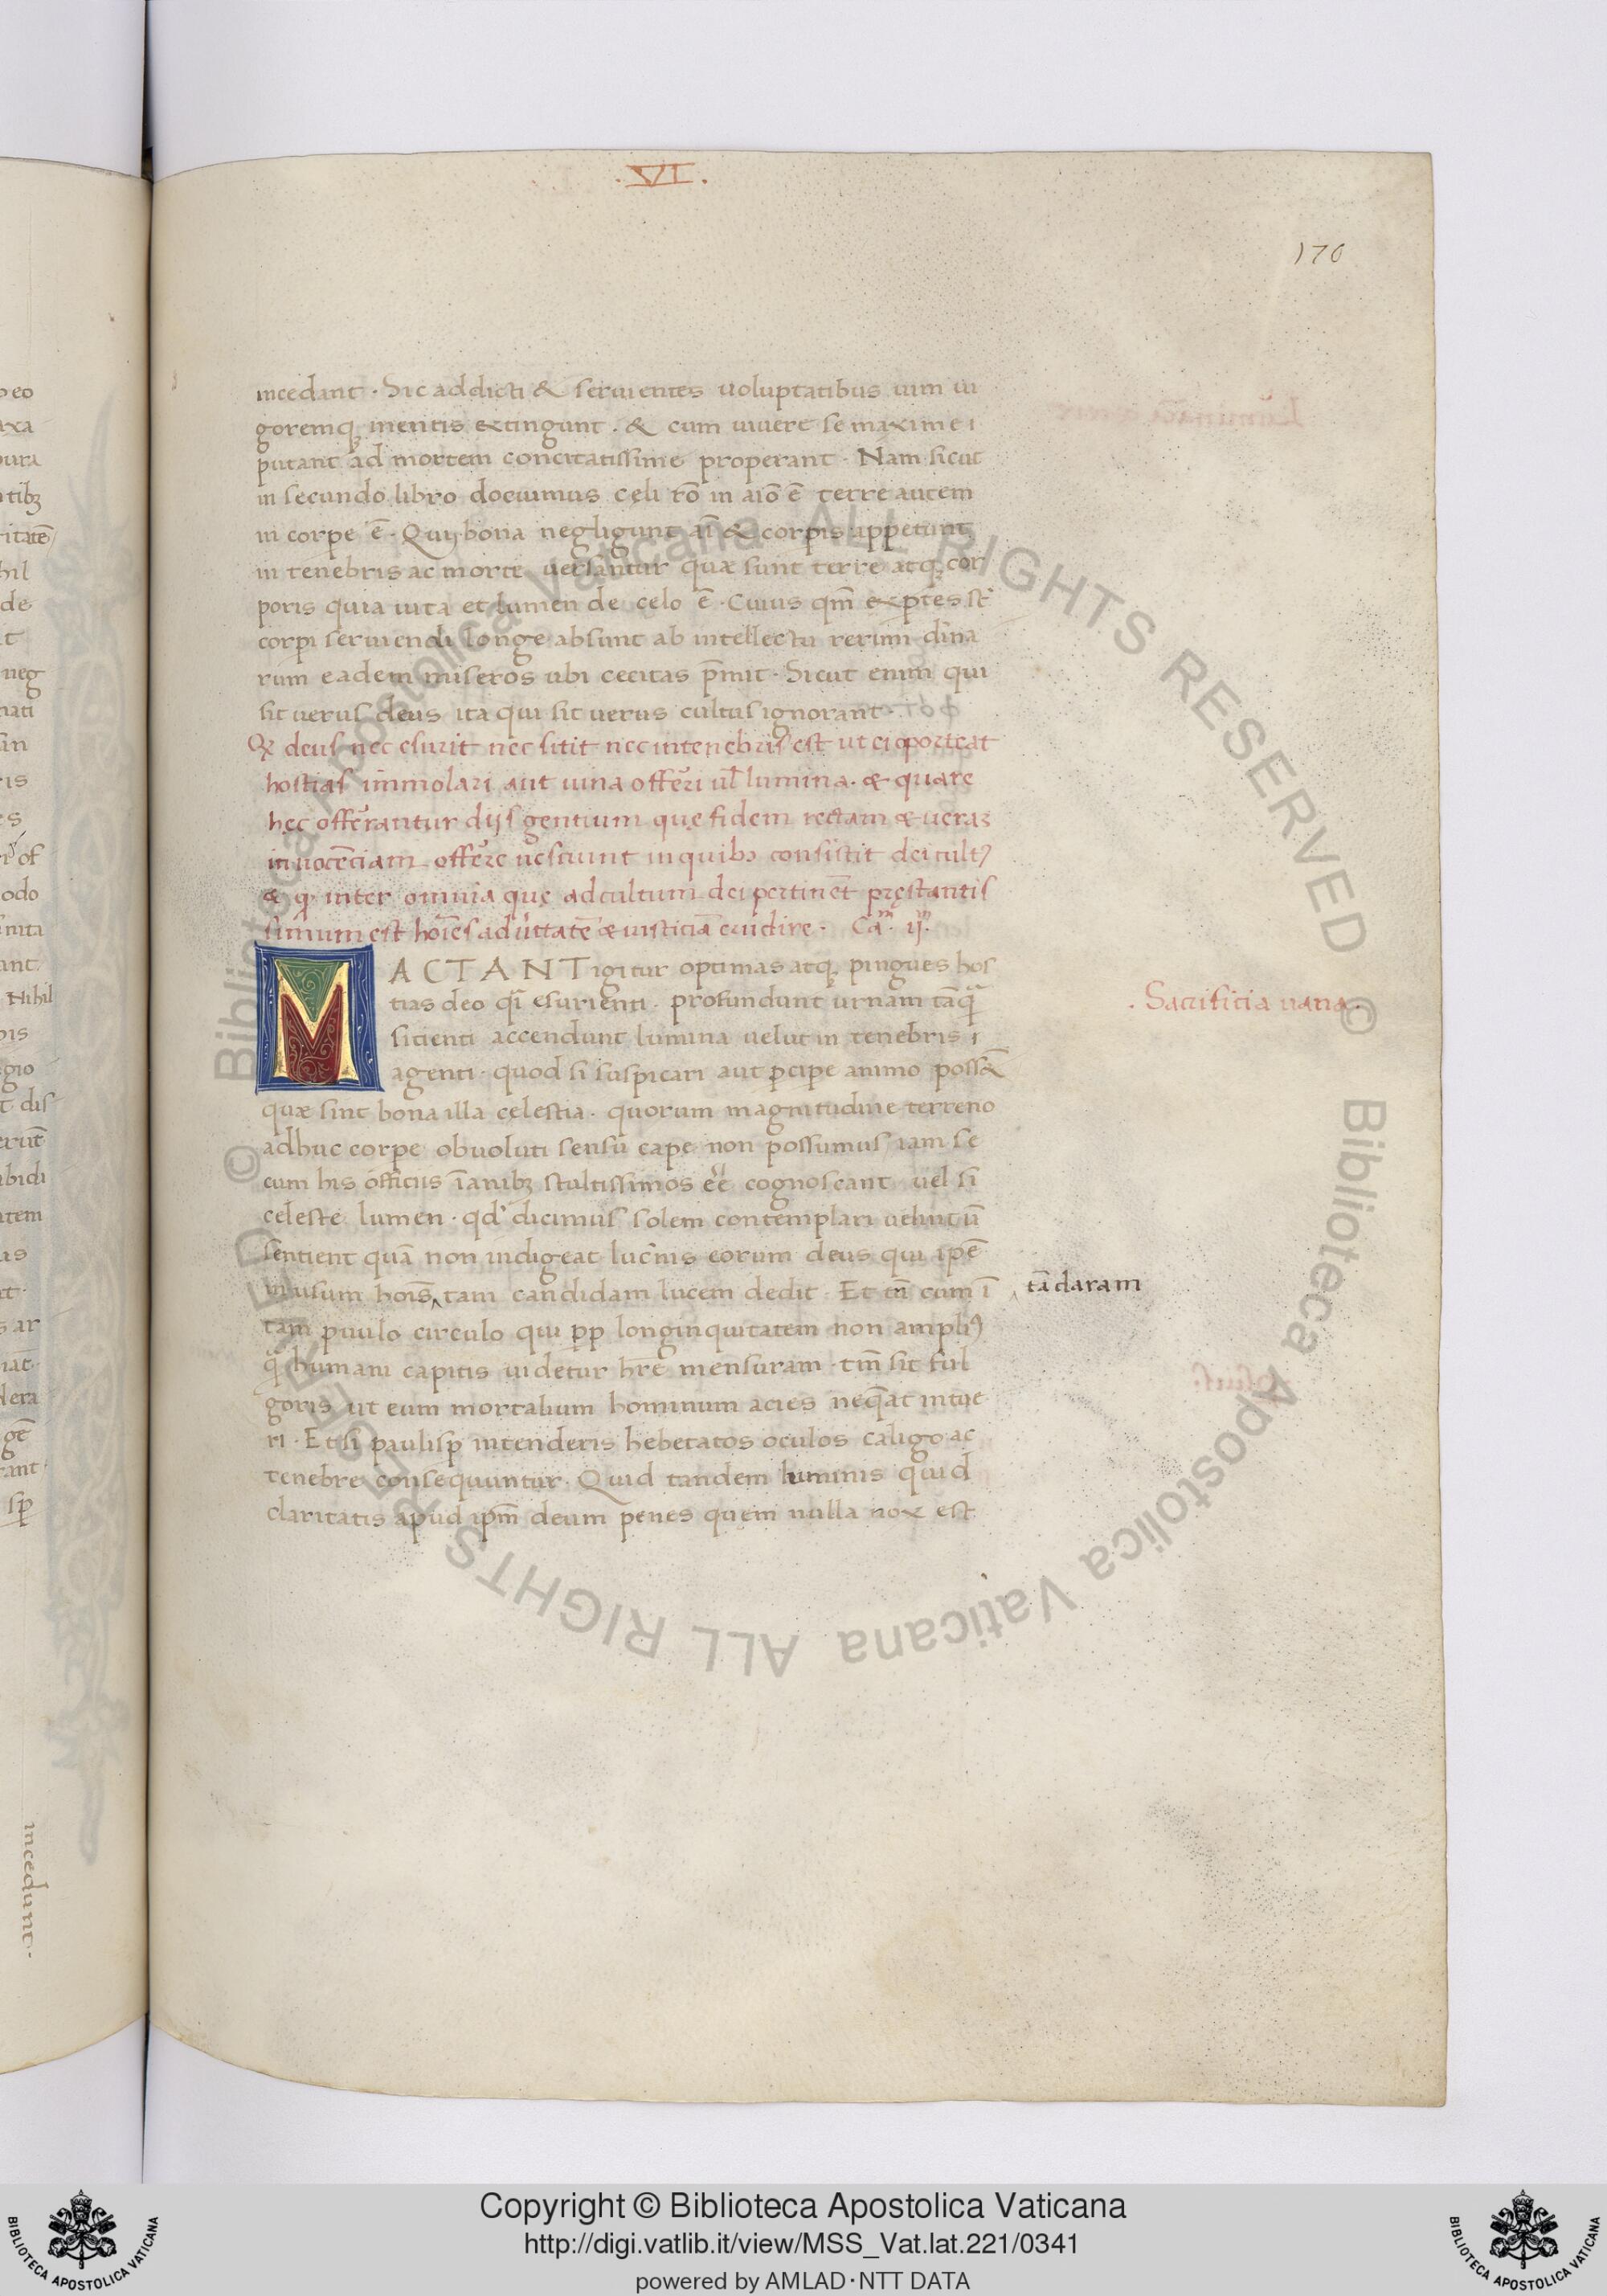 .VI.
170
incedant. Sic addicti & seruientes uoluptatibus uim ui
goremq; mentis extingunt. & cum uiuere se maxime i
putant ad mortem concitatissime properant. Nam sicut
in secundo libro docuimus cęli rō in aiō ē terre autem
in corpe ē. Qui bona negligunt ai & corpis appetunt
in tenebris ac morte uersantur quæ sunt terre atq; cor
poris quia uita et lumen de celo ē. Cuius qm̄ exptes st̄
corpi seruiendi longe absunt ab intellectu rerum diina
rum eadem miseros ubi cecitas p̄mit. Sicut enim qui
sit uerus deus ita qui sit uerus cultus ignorant.
Q deus nec esurit nec sitit nec in tenebris est ut ei oporteat
hostias immolari aut uina offerri ul lumina. & quare
hęc offerantur dijs gentium quę fidem rectam & ueraz
innocēciam offerre nesciunt in quibз consistit dei cultꝰ
& q inter omnia quę ad cultum dei pertinēt pręstantis
simum est hoīes ad ūitatē & iusticiā erudire. Ca.m ij.m
MACTANT igitur optimas atq; pingues hos
tias deo q̄i esurienti. profundunt urnam tāq̄
sitienti accendunt lumina uelut in tenebris i
agenti. quod si suspicari aut pcipe animo possēt
quæ sint bona illa celestia. quorum magnitudine terreno
adhuc corpe obuoluti sensū cape non possumus iam se
cum his officiis īanibз stultissimos eē cognoscant uel si
celeste lumen. qd dicimus solem contemplari uelint ū
sentient quā non indigeat lucnis eorum deus qui ipē
in usum hoīs tam candidam lucem dedit. Et tn̄ cum ī
tā claram
tam puulo circulo qui pp longinquitatem non ampliꝰ
q̄ humani capitis uidetur hr̄e mensuram. tm̄ sit ful
goris ut eum mortalium hominum acies neq̄at intue
ri. Et si paulisp intenderis hebetatos oculos caligo ac
tenebre consequuntur. Quid tandem luminis quid
claritatis apud ipm̄ deum penes quem nulla nox est
. Sacrificia uana.
incedunt.
© Biblioteca Apostolica Vaticana ALL RIGHTS RESERVED © Biblioteca Apostolica Vaticana ALL RIGHTS RESERVED
Copyright © Biblioteca Apostolica Vaticana
http://digi.vatlib.it/view/MSS_Vat.lat.221/0341
powered by AMLAD·NTT DATA
BIBLIOTECA APOSTOLICA VATICANA
BIBLIOTECA APOSTOLICA VATICANA